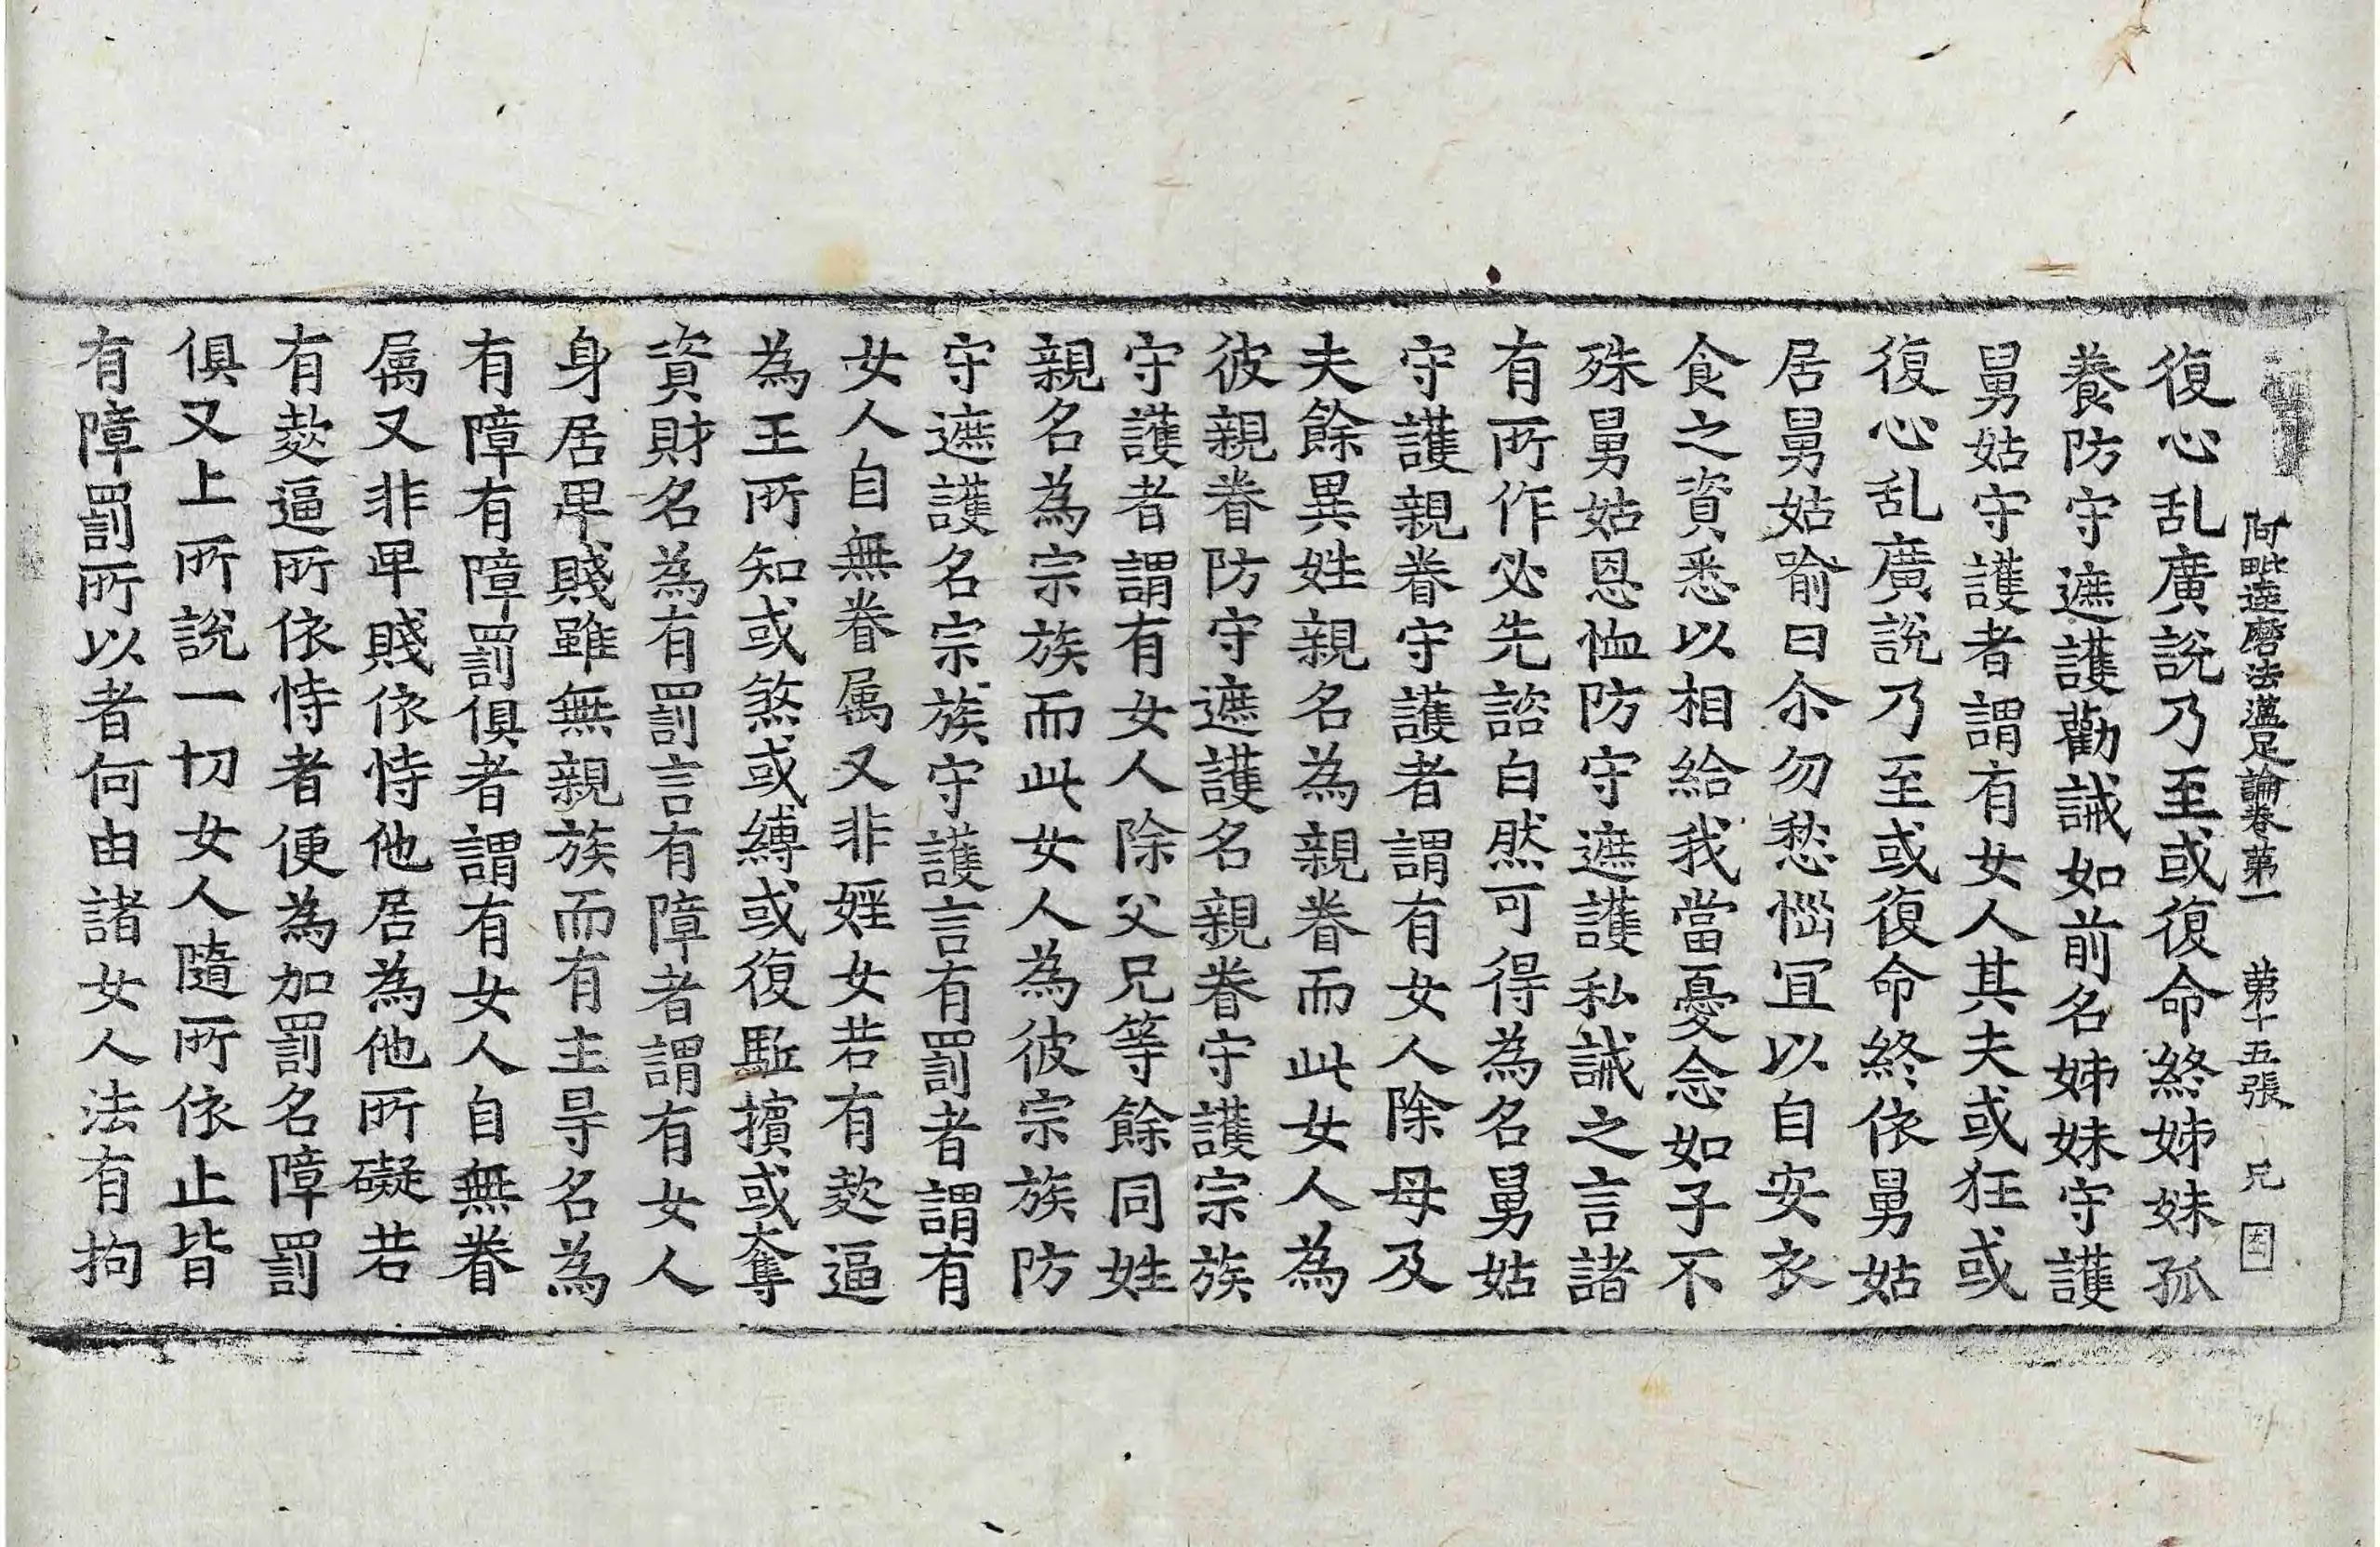 阿毗達磨法蘊足論卷苐一 苐十五張 兄
復心乱廣說乃至或復命終姊妹孤
養防守遮護勸誡如前名姊妹守護
舅姑守護者謂有女人其夫或狂或
復心乱廣說乃至或復命終依舅姑
居舅姑喻曰尒勿愁惱宜以自安衣
食之資悉以相給我當憂念如子不
殊舅姑恩恤防守遮護私誡之言諸
有所作必先諮白然可得為名舅姑
守護親眷守護者謂有女人除母及
夫餘異姓親名為親眷而此女人為
彼親眷防守遮護名親眷守護宗族
守護者謂有女人除父兄等餘同姓
親名為宗族而此女人為彼宗族防
守遮護名宗族守護言有罰者謂有
女人自無眷属又非婬女若有欻逼
為王所知或煞或縛或復駈擯或奪
資財名為有罰言有障者謂有女人
身居卑賤雖無親族而有主㝵名為
有障有障罰俱者謂有女人自無眷
属又非卑賤依恃他居為他所礙若
有欻逼所依恃者便為加罰名障罰
俱又上所說一切女人隨所依止皆
有障罰所以者何由諸女人法有拘